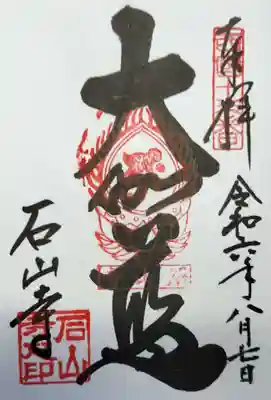 奉拝
令和六年八月七日
大伽藍
石山寺
石山寺印